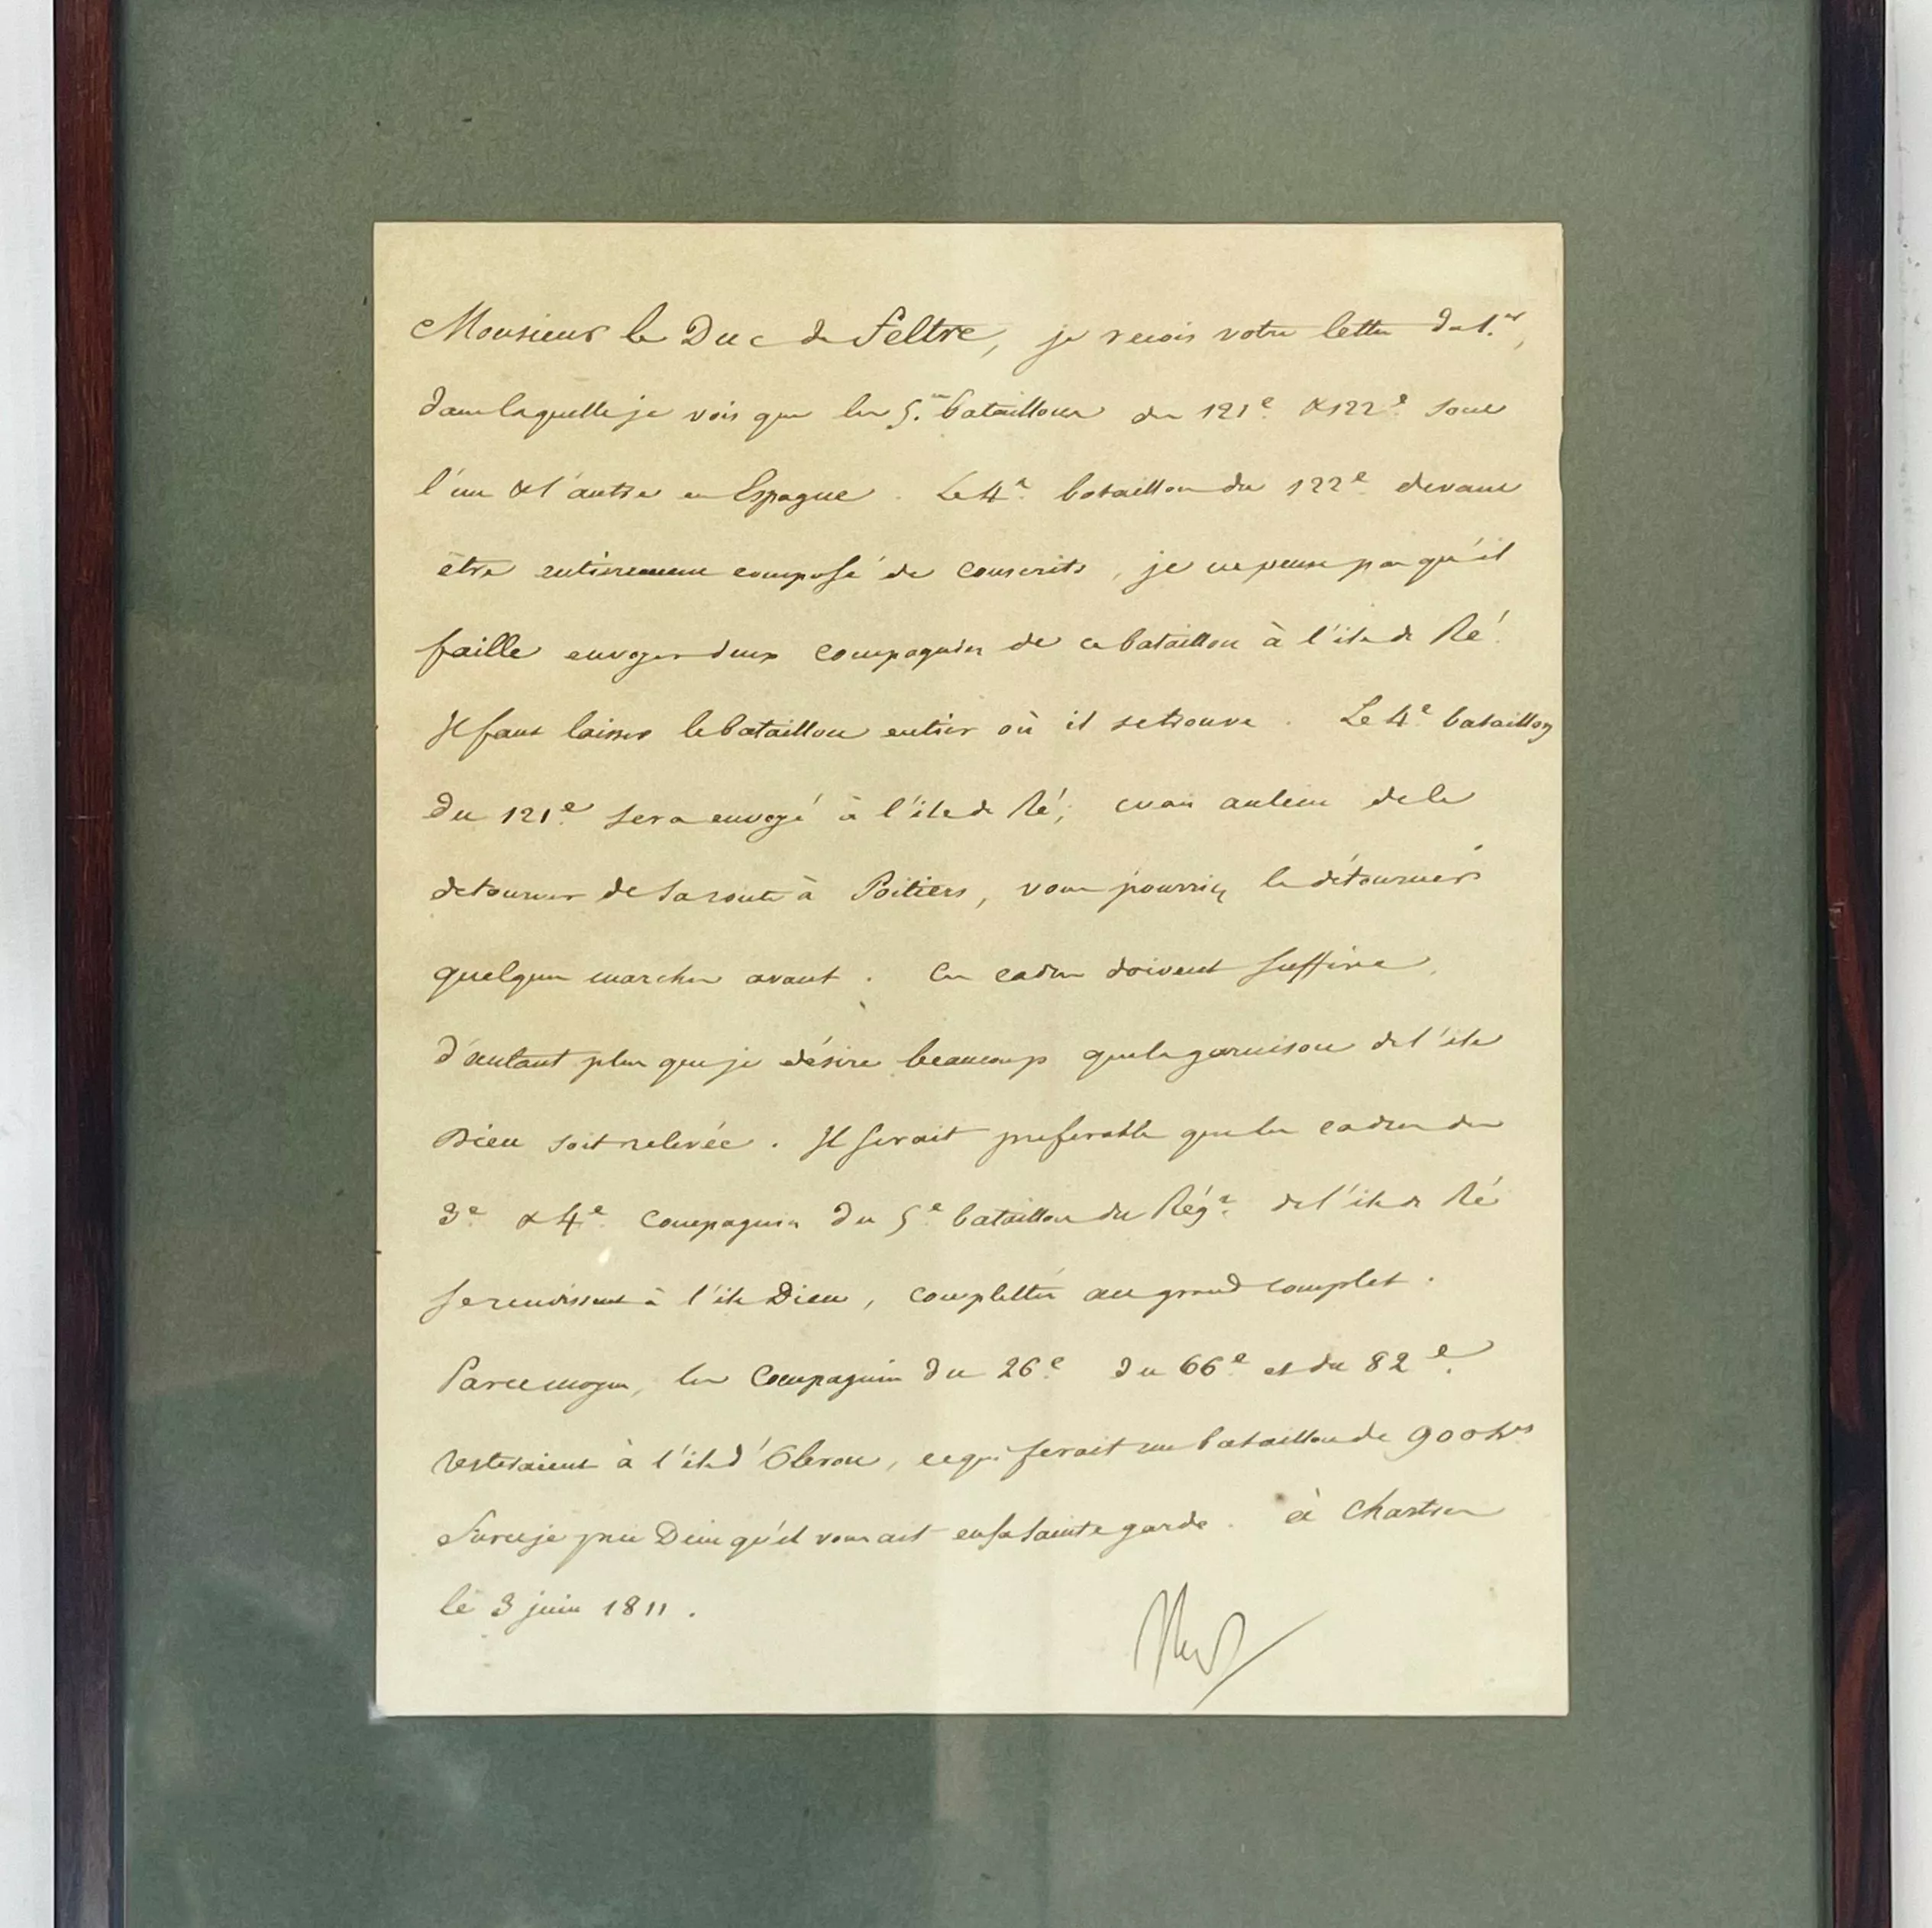 Monsieur le Duc de Feltre, je reçois votre lettre du 1.er,
dans laquelle je vois que les 5.es bataillons du 121e & 122e sont
l'un & l'autre en Espagne. Le 4e bataillon du 122e devant
être entièrement composé de conscrits, je ne pense pas qu'il
faille envoyer deux compagnies de ce bataillon à l'ile de Ré.
Il faut laisser le bataillon entier où il se trouve. Le 4e bataillon
du 121e sera envoyé à l'ile de Ré; mais au lieu de le
detourner de sa route à Poitiers, vous pourriez le détourner
quelques marches avant. Ces cadres doivent suffire,
d'autant plus que je désire beaucoup que la garnison de l'ile
Dieu soit relevée. Il serait preferable que les cadres des
3e & 4e compagnies du 5e bataillon du Régt de l'ile de Ré
se rendissent à l'ile Dieu, complettés au grand complet.
Par ce moyen, les compagnies du 26e du 66e et du 82e
resteraient à l'ile d'Oleron, ce qui ferait un bataillon de 900 hes
Sur ce je prie Dieu qu'il vous ait en sa sainte garde. à Chartres
le 3 juin 1811.